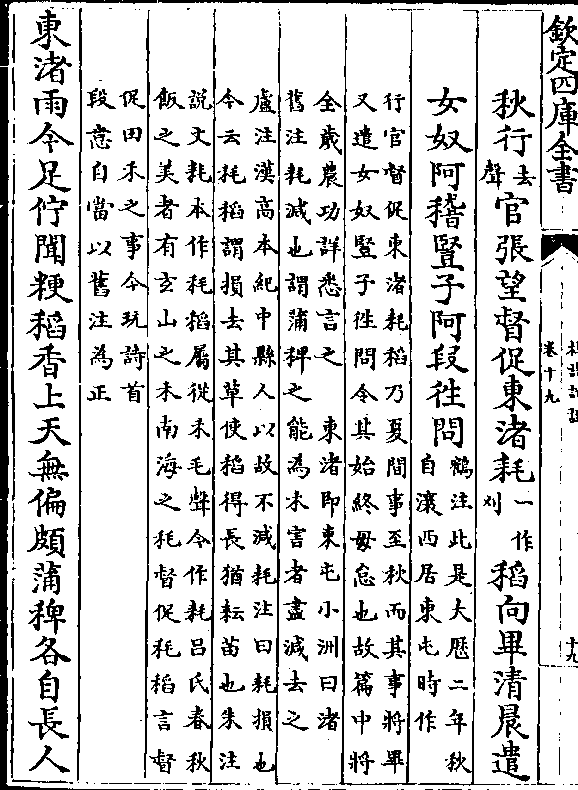 欽定四庫全書
卷十九
十九
秋行去聲官張望督促東渚耗一作刈稻向畢清晨遣
女奴阿稽豎子阿段往問鶴注此是大歷二年秋自瀼西居東屯時作
行官督促東渚耗稻乃夏間事至秋而其事將畢
又遣女奴豎子往問令其始終毋怠也故篇中將
全歲農功詳悉言之 東渚即東屯小洲曰渚
舊注耗減也謂蒲稗之能為禾害者盡減去之
盧注漢高本紀中縣人以故不減耗注曰耗損也
今云耗稻謂損去其草使稻得長猶耘苗也朱注
説文耗本作秏稻屬從禾毛聲今作耗呂氏春秋
飯之美者有玄山之禾南海之秏督促秏稻言督
促田禾之事今玩詩首
段意自當以舊注為正
東渚雨今足佇聞粳稻香上天無偏頗蒲稗各自長人